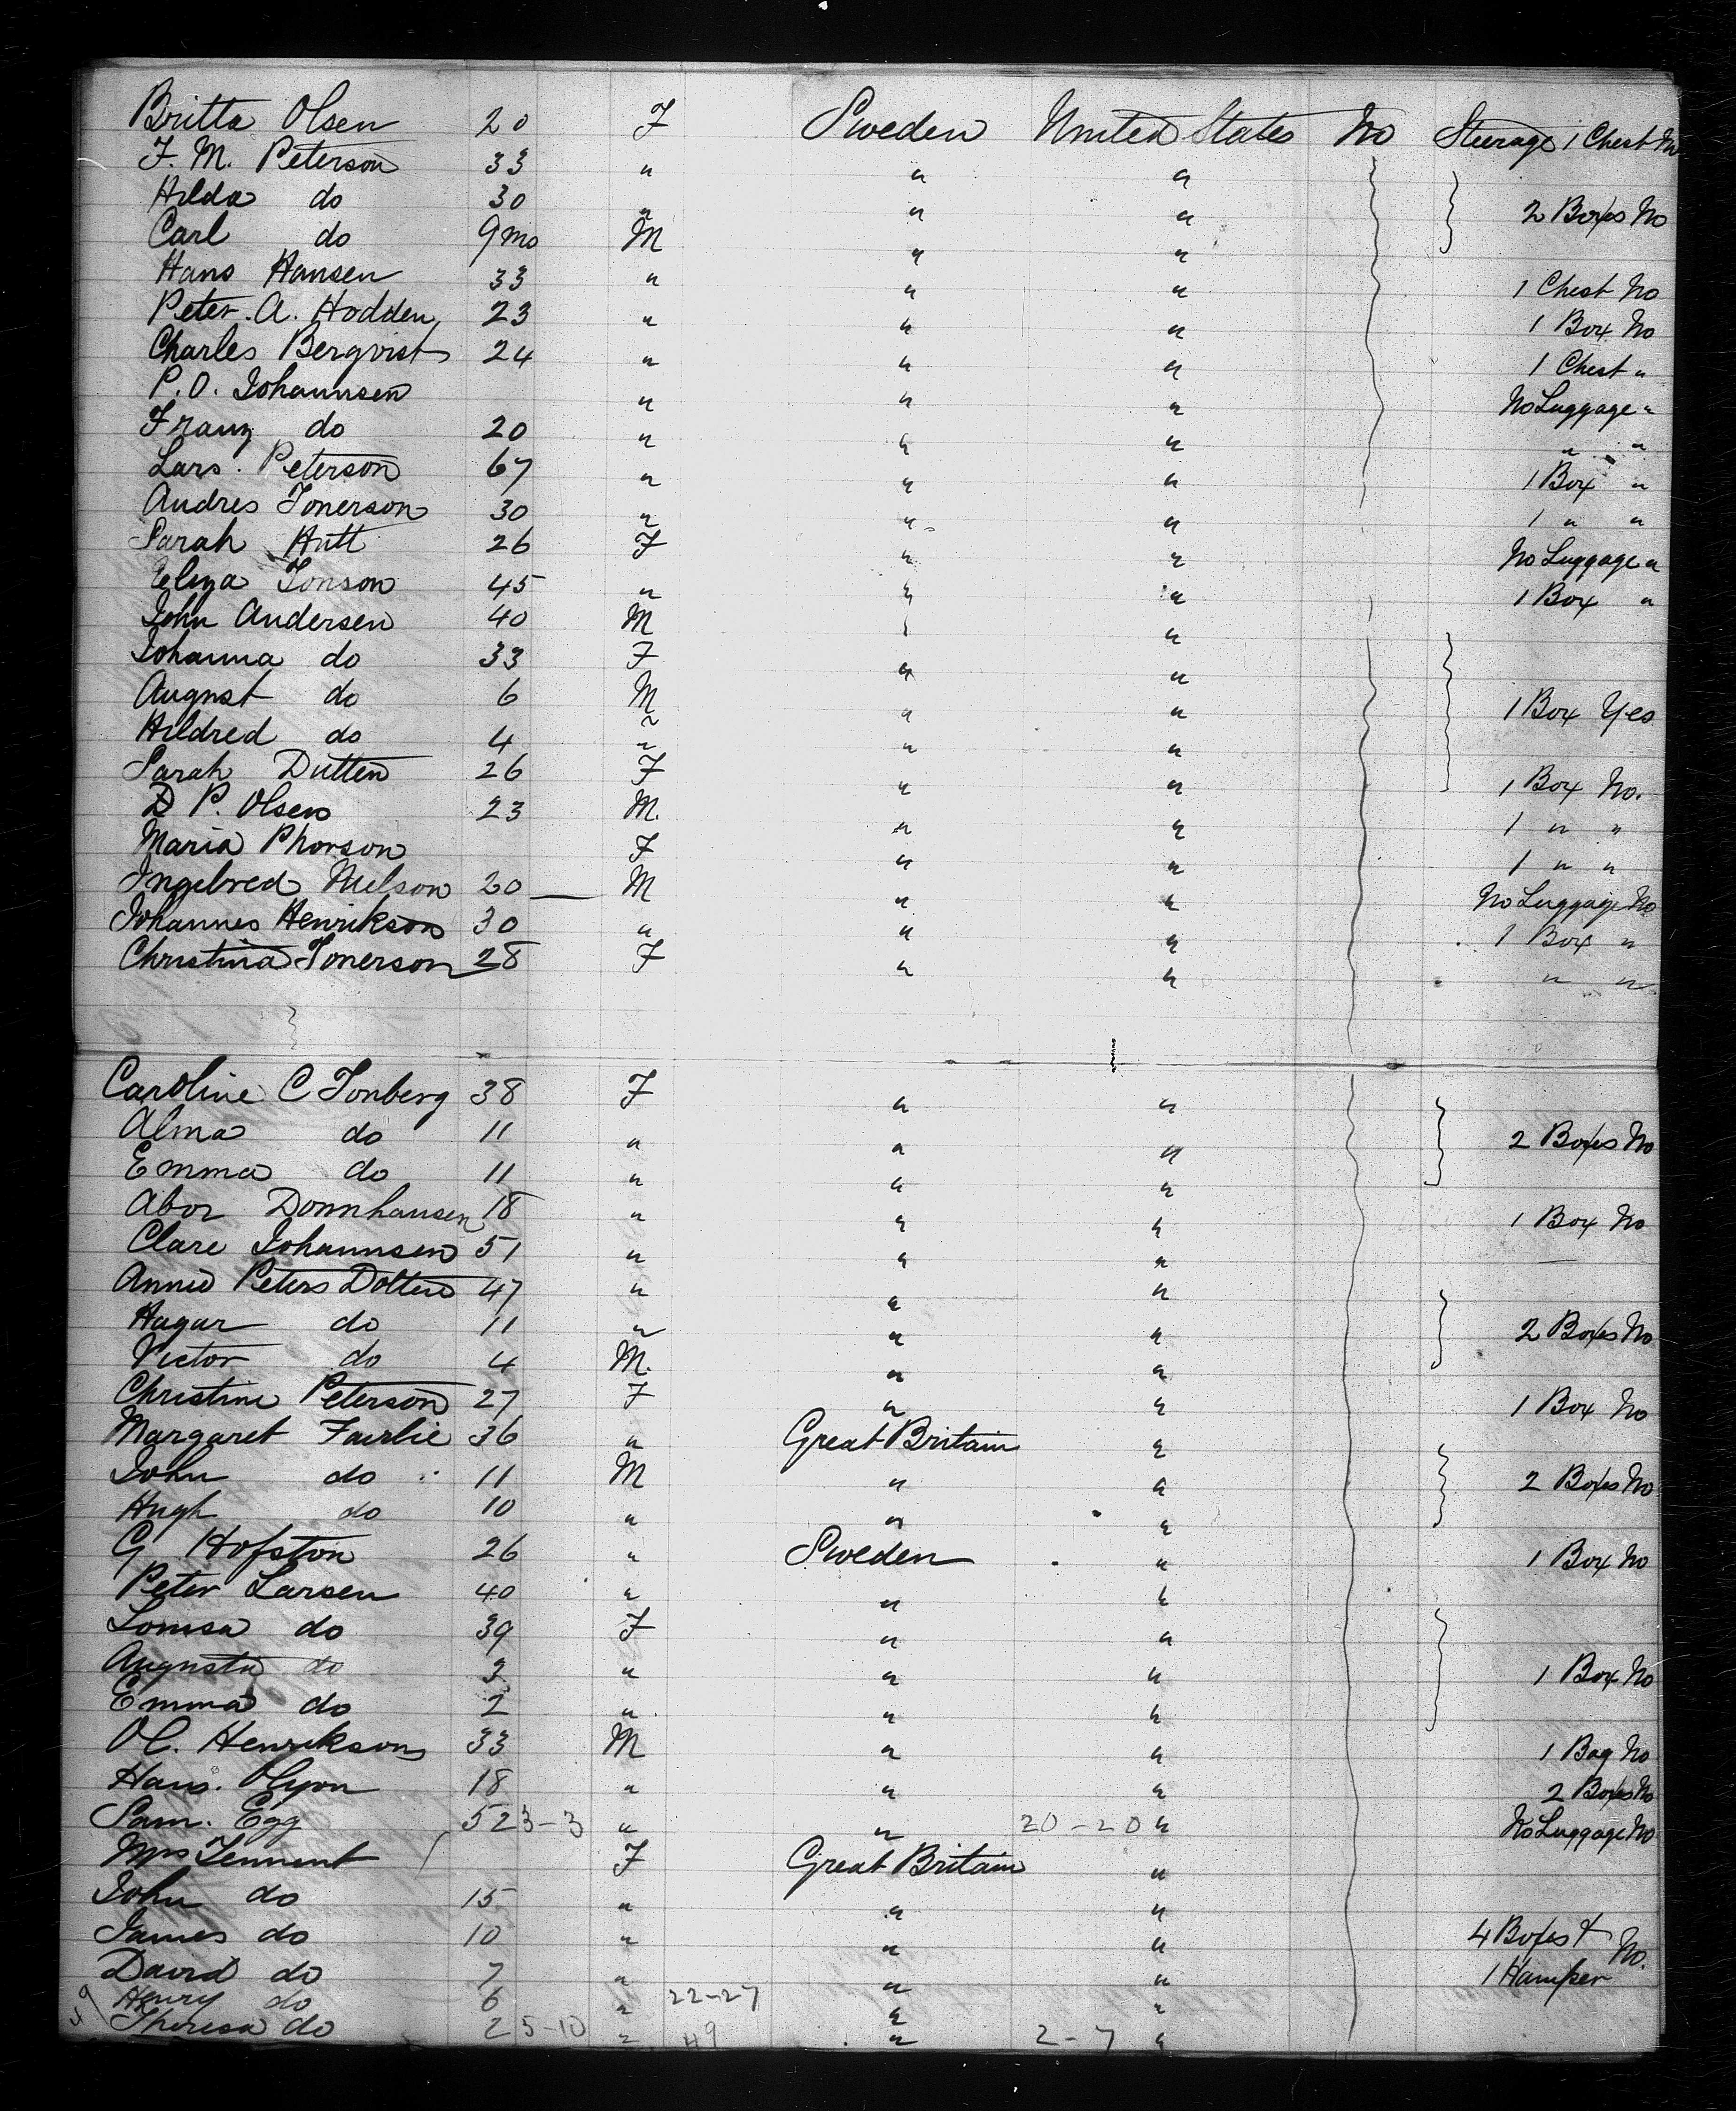 Britta Olsen 20 F Sweden United States No Steerage 1 Chest No
F. M. Peterson 33 " " "
Hilda do 30 " " " 2 Boxes No
Carl do 9 mo M " "
Hans Hansen 33 " " " 1 Chest No
Peter. A. Hodden 23 " " " 1 Box No
Charles Berqvist 24 " " " 1 Chest "
P. O. Johannsen " " " No Luggage "
Franz do 20 " " " " "
Lars. Peterson 67 " " " 1 Box "
Andres Tonerson 30 " " " 1 " "
Sarah Hutt 26 F " " No Luggage "
Eliza Tonson 45 " " " 1 Box "
John Andersen 40 M " "
Johanna do 33 F " "
August do 6 M " " 1 Box Yes
Hildred do 4 " " "
Sarah Dutten 26 F " " 1 Box No.
D P. Olsen 23 M. " " 1 " "
Maria Phorson F " " 1 " "
Ingebred Nelson 20 — M " " No Luggage No
Johannes Henrikson 30 " " " 1 Box "
Christina Tonerson 28 F " " " "
Caroline C Tonberg 38 F " "
Alma do 11 " " " 2 Boxes No
Emma do 11 " " "
Abor Donnhausen 18 " " " 1 Box No
Clare Johannsen 51 " " " —
Annie Peters Dolten 47 " " "
Hagar do 11 " " " 2 Boxes No
Victor do 4 M. " "
Christine Peterson 27 F " " 1 Box No
Margaret Fairlie 36 " Great Britain "
John do 11 M " " 2 Boxes No
Hugh do 10 " " "
G Hofston 26 " Sweden " 1 Box No
Peter Larsen 40 " " "
Louisa do 39 F " "
Augusta do 3 " " " 1 Box No
Emma do 2 " " "
Ol. Henrikson 33 M " " 1 Bag No
Hans. Olyon 18 " " " 2 Boxes No
Sam. Egg 52 3-3 " " 20-20 " No Luggage No
Mrs Tennent F Great Britain "
John do 15 " " "
James do 10 " " " 4 Boxes & No.
David do 7 " " " 1 Hamper
Henry do 6 " 22-27 " "
Theresa do 2 5-10 " 49 " 2-7 "